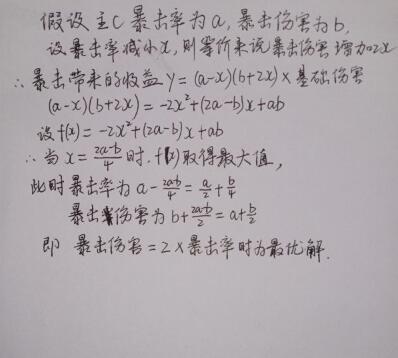 假设主C暴击率为a,暴击伤害为b,
设暴击率减小x,则等价来说暴击伤害增加2x
∴暴击带来的收益y=(a-x)(b+2x)×基础伤害
(a-x)(b+2x)=-2x²+(2a-b)x+ab
设f(x)=-2x²+(2a-b)x+ab
∴当x=\frac{2a-b}{4}时,f(x)取得最大值,
此时暴击率为a-\frac{2a-b}{4}=\frac{a}{2}+\frac{b}{4}
暴击伤害为b+\frac{2a-b}{2}=a+\frac{b}{2}
即 暴击伤害=2×暴击率时为最优解.